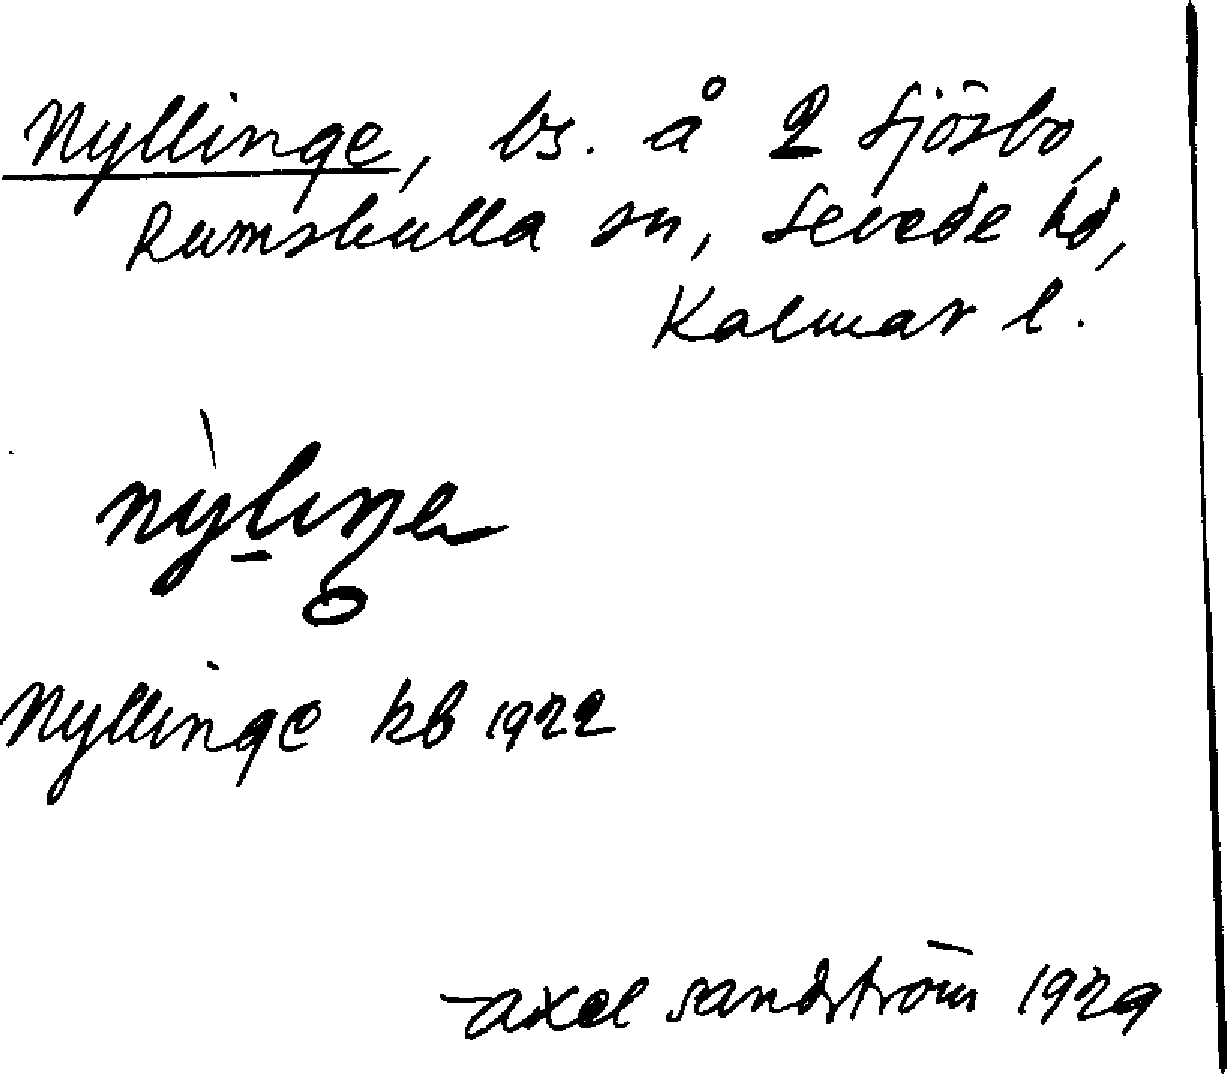 Nyllinge, bs. å 2 Sjösbo,
Rumskulla sn, Sevede hd,
Kalmar l.
Nyllinge kb 1922
Axel Sandström 1929